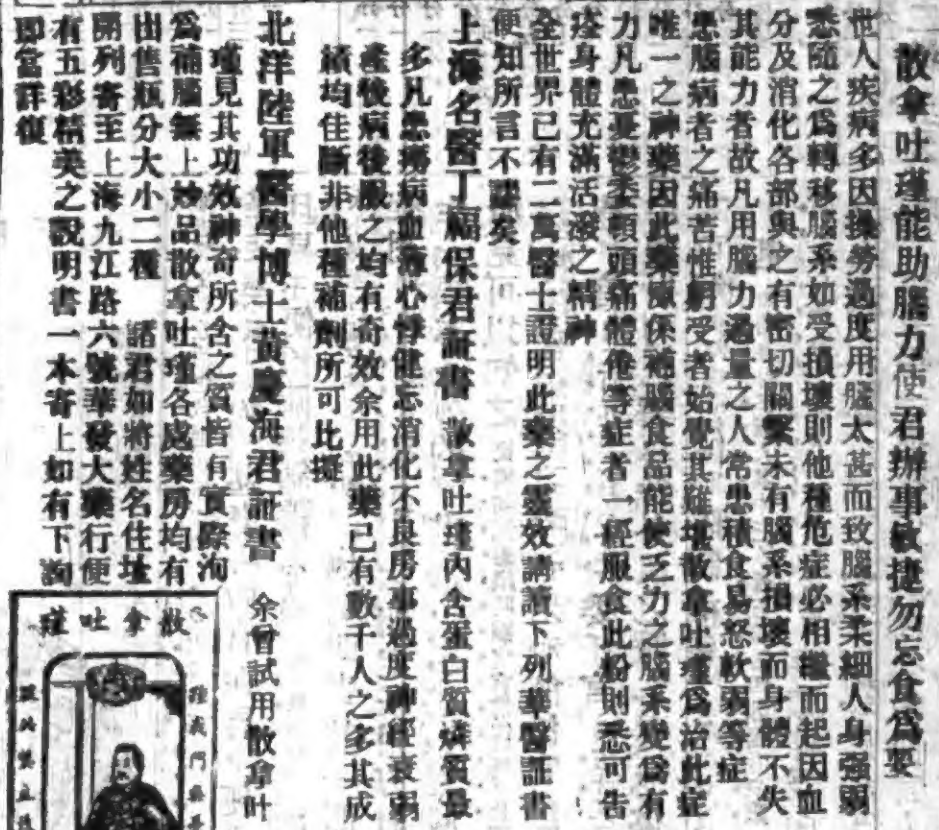 散拿吐瑾能助腦力使君辦事敏捷勿忘食爲要
世人疾病多因操勞過度用腦太甚而致腦系柔細人身强弱
悉隨之爲轉移腦系如受損壞則他種危症必相繼而起因血
分及消化各部與之有密切關繫未有腦系損壞而身體不失
其能力者故凡用腦力過量之人常患積食易怒軟弱等症
患腦病者之痛苦惟躬受者始覺其難堪散拿吐瑾爲治此症
唯一之神藥因此藥原係補腦食品能使乏力之腦系變爲有
力凡患憂鬱委頓頭痛體倦等症者一經服食此粉則悉可告
痊身體充滿活潑之精神
全世界已有二萬醫士證明此藥之靈效請讀下列華醫証書
便知所言不謬矣
上海名醫丁福保君証書 散拿吐瑾內含蛋白質燐質最
多凡患癆病血薄心悸健忘消化不良房事過度神經衰弱
產後病後服之均有奇效余用此藥已有數千人之多其成
績均佳斷非他種補劑所可比擬
北洋陸軍醫學博士黃慶海君証書 余曾試用散拿吐
瑾見其功效神奇所含之質皆有實際洵
爲補腦無上妙品散拿吐瑾各處藥房均有
出售瓶分大小二種 諸君如將姓名住址
開列寄至上海九江路六號華發大藥行便
有五彩精美之說明書一本寄上如有下詢
即當詳復
散拿吐瑾